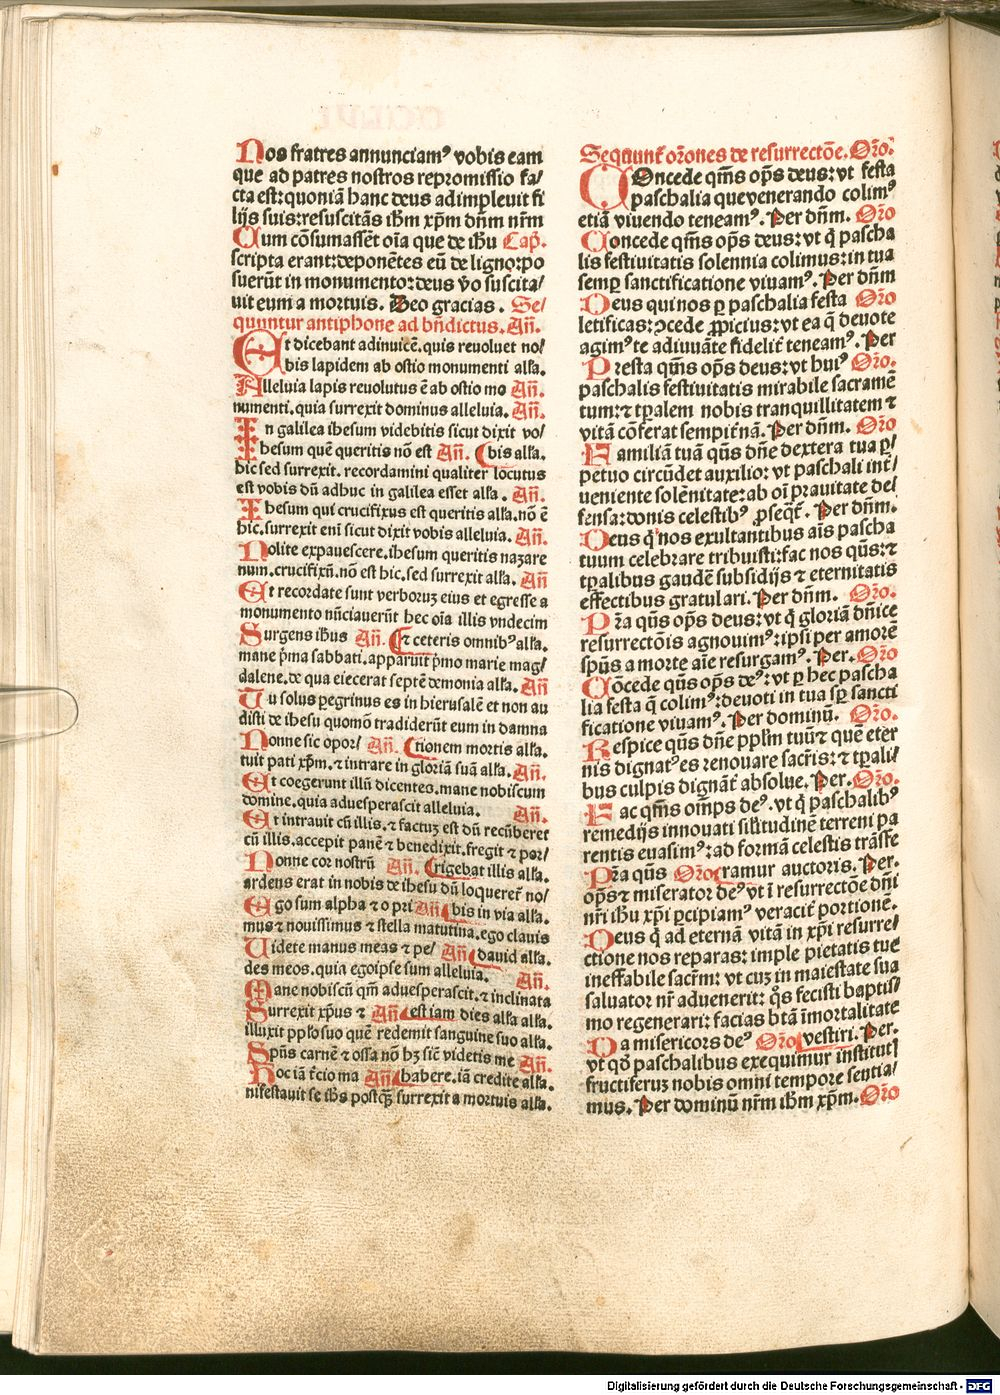 Nos fratres annunciamꝰ vobis eam
que ad patres nostros repromissio fa/
cta est: quoniā hanc deus adimpleuit fi
lijs suis: resuscitās ihm xp̄m dn̄m nr̄m
Cum cōsumassēt oīa que de ihu Cap̄.
scripta erant: deponētes eū de ligno: po
suerūt in monumento: deus v̄o suscita/
uit eum a mortuis. Deo gracias. Se/
quuntur antiphone ad bn̄dictus. An̄.
Et dicebant adinuicē. quis reuoluet no/
bis lapidem ab ostio monumenti alla.
Alleluia lapis reuolutus ē ab ostio mo An̄.
numenti. quia surrexit dominus alleluia. An̄.
In galilea ihesum videbitis sicut dixit vo/
Ihesum quē queritis nō est An̄. bis alla.
hic sed surrexit. recordamini qualiter locutus
est vobis dū adhuc in galilea esset alla. An̄.
Ihesum qui crucifixus est queritis alla. nō ē
hic. surrexit eni sicut dixit vobis alleluia. An̄.
Nolite expauescere. ihesum queritis nazare
num. crucifixū. nō est hic. sed surrexit alla. An̄
Et recordate sunt verboruꝫ eius et egresse a
monumento nūciauerūt hec oīa illis vndecim
Surgens ihus An̄. et ceteris omnibꝰ alla.
mane p̄ma sabbati. apparuit p̄mo marie mag/
dalene. de qua eiecerat septē demonia alla. An̄
Tu solus peregrinus es in hierusalē et non au
disti de ihesu quomō tradiderūt eum in damna
Nonne sic opor/ An̄. tionem mortis alla.
tuit pati xp̄m. ⁊ intrare in gloriā suā alla. An̄.
Et coegerunt illū dicentes. mane nobiscum
domine. quia aduesperascit alleluia. An̄.
Et intrauit cū illis. ⁊ factuꝫ est dū recūberet
cū illis. accepit panē ⁊ benedixit. fregit ⁊ por/
Nonne cor nostrū An̄. rigebat illis alla.
ardens erat in nobis de ihesu dū loqueret̄ no/
Ego sum alpha ⁊ o pri An̄ bis in via alla.
mus ⁊ nouissimus ⁊ stella matutina. ego clauis
Uidete manus meas ⁊ pe/ An̄ dauid alla.
des meos. quia egoipse sum alleluia. An̄.
Mane nobiscū qm̄ aduesperascit. ⁊ inclinata
Surrexit xp̄us ⁊ An̄ est iam dies alla alla.
illuxit pplo suo quē redemit sanguine suo alla.
Spūs carnē ⁊ ossa nō hꝫ sic̄ videtis me An̄.
Hoc iā t̄cio ma An̄ habere. iā credite alla.
nifestauit se ihs postqꝫ surrexit a mortuis alla.
Sequunt̄ orōnes de resurrectōe. Orō.
COncede qm̄s op̄s deus: vt festa
paschalia que venerando colimꝰ
etiā viuendo teneamꝰ. Per dn̄m. Orō
Concede qm̄s op̄s deus: vt q̄ pascha
lis festiuitatis solennia colimus: in tua
semꝑ sanctificatione viuamꝰ. Per dn̄m
Deus qui nos ꝑ paschalia festa Orō
letificas: ꝯcede ꝓpicius: vt ea q̄ deuote
agimꝰ te adiuuāte fidelit̄ teneamꝰ. Per
Presta qm̄s op̄s deus: vt huiꝰ Orō.
paschalis festiuitatis mirabile sacramē
tum: ⁊ tꝑalem nobis tranquillitatem ⁊
vitā cōferat sempit̄nā. Per dn̄m. Orō
Familiā tuā qūs dn̄e dextera tua ꝑ/
petuo circūdet auxilio: vt paschali int̄/
ueniente solēnitate: ab oī prauitate de/
fensa: donis celestibꝰ ꝓseq̄t̄. Per dn̄m.
Deus q̄ nos exultantibus aīs pascha
tuum celebrare tribuisti: fac nos qūs: ⁊
tꝑalibus gaudē subsidijs ⁊ eternitatis
effectibus gratulari. Per dn̄m. Orō.
Pr̄a qūs op̄s deus: vt q̄ gloriā dn̄ice
resurrectōis agnouimꝰ: ipsi per amorē
spūs a morte aīe resurgamꝰ. Per. Orō
Cōcede qūs op̄s deꝰ: vt ꝑ hec pascha
lia festa q̄ colimꝰ: deuoti in tua sꝑ sancti
ficatione viuamꝰ. Per dominū. Orō.
Respice qūs dn̄e pplm tuū: ⁊ quē eter
nis dignatꝰ es renouare sacr̄is: ⁊ tꝑali/
bus culpis dignāt̄ absolue. Per. Orō.
Fac qm̄s omīps deꝰ. vt q̄ paschalibꝰ
remedijs innouati silitudinē terreni pa
rentis euasimꝰ: ad formā celestis trāsfe
Pr̄a qūs Orō ramur auctoris. Per.
op̄s ⁊ miserator deꝰ vt ī resurrectōe dn̄i
nr̄i ihu xp̄i ꝑcipiamꝰ veracit̄ portionē.
Deus q̄ ad eternā vitā in xp̄i resurre/
ctione nos reparas: imple pietatis tue
ineffabile sacr̄m: vt cuꝫ in maiestate sua
saluator nr̄ aduenerit: q̄s fecisti baptis/
mo regenerari: facias btā īmortalitate
Da misericors deꝰ Orō vestiri. Per.
vt qd̄ paschalibus exequimur instituti
fructiferuꝫ nobis omni tempore sentia/
mus. Per dominū nr̄m ihm xp̄m. Orō
Digitalisierung gefördert durch die Deutsche Forschungsgemeinschaft - DFG